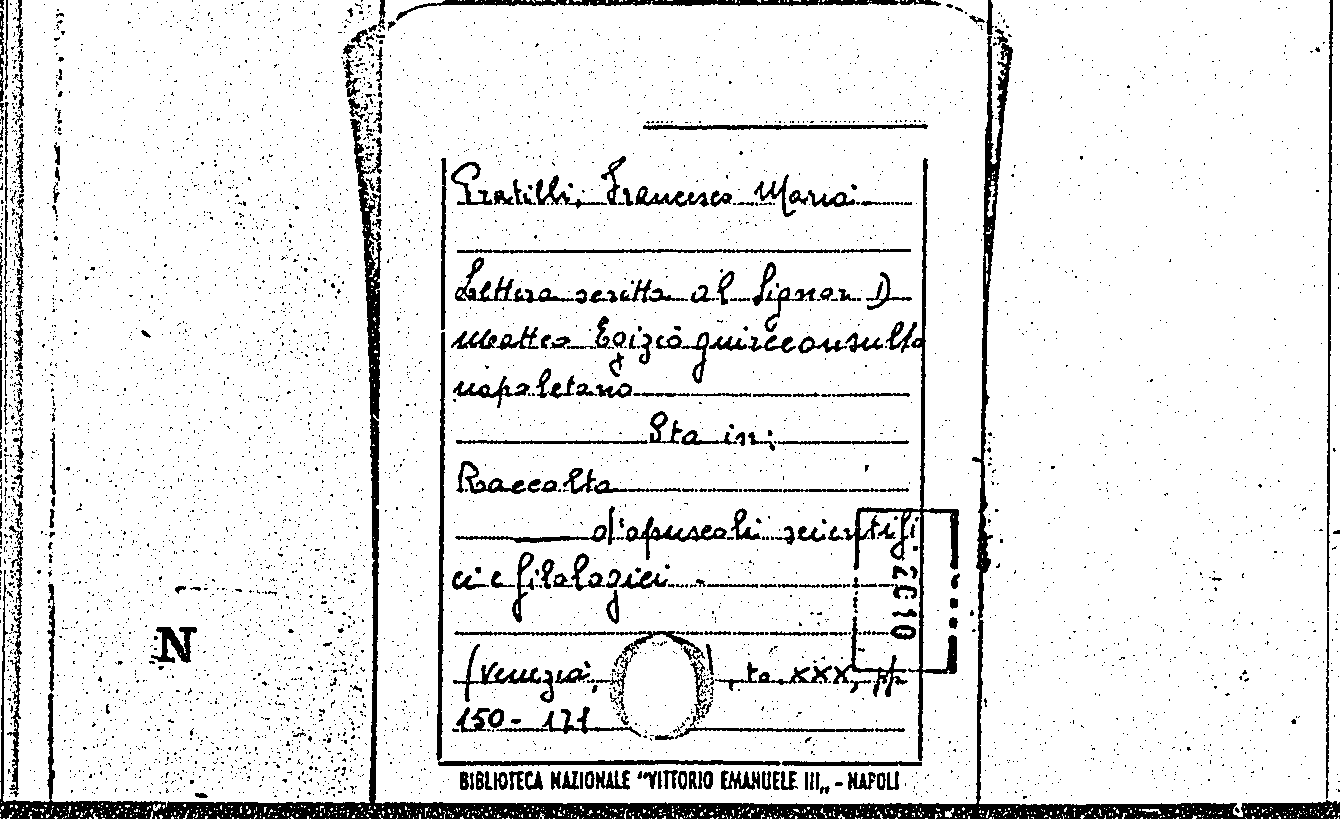 Pratilli, Francesco Maria
Lettera scritta al Signor D
Matteo Egizio guireconsulto
napoletano
Sta in:
Raccolta
d'opuscoli scientifi.
ci e filologici
(Venezia, , to. XXX, pp
150- 171
2010
N
BIBLIOTECA NAZIONALE "VITTORIO EMANUELE III„ - NAPOLI